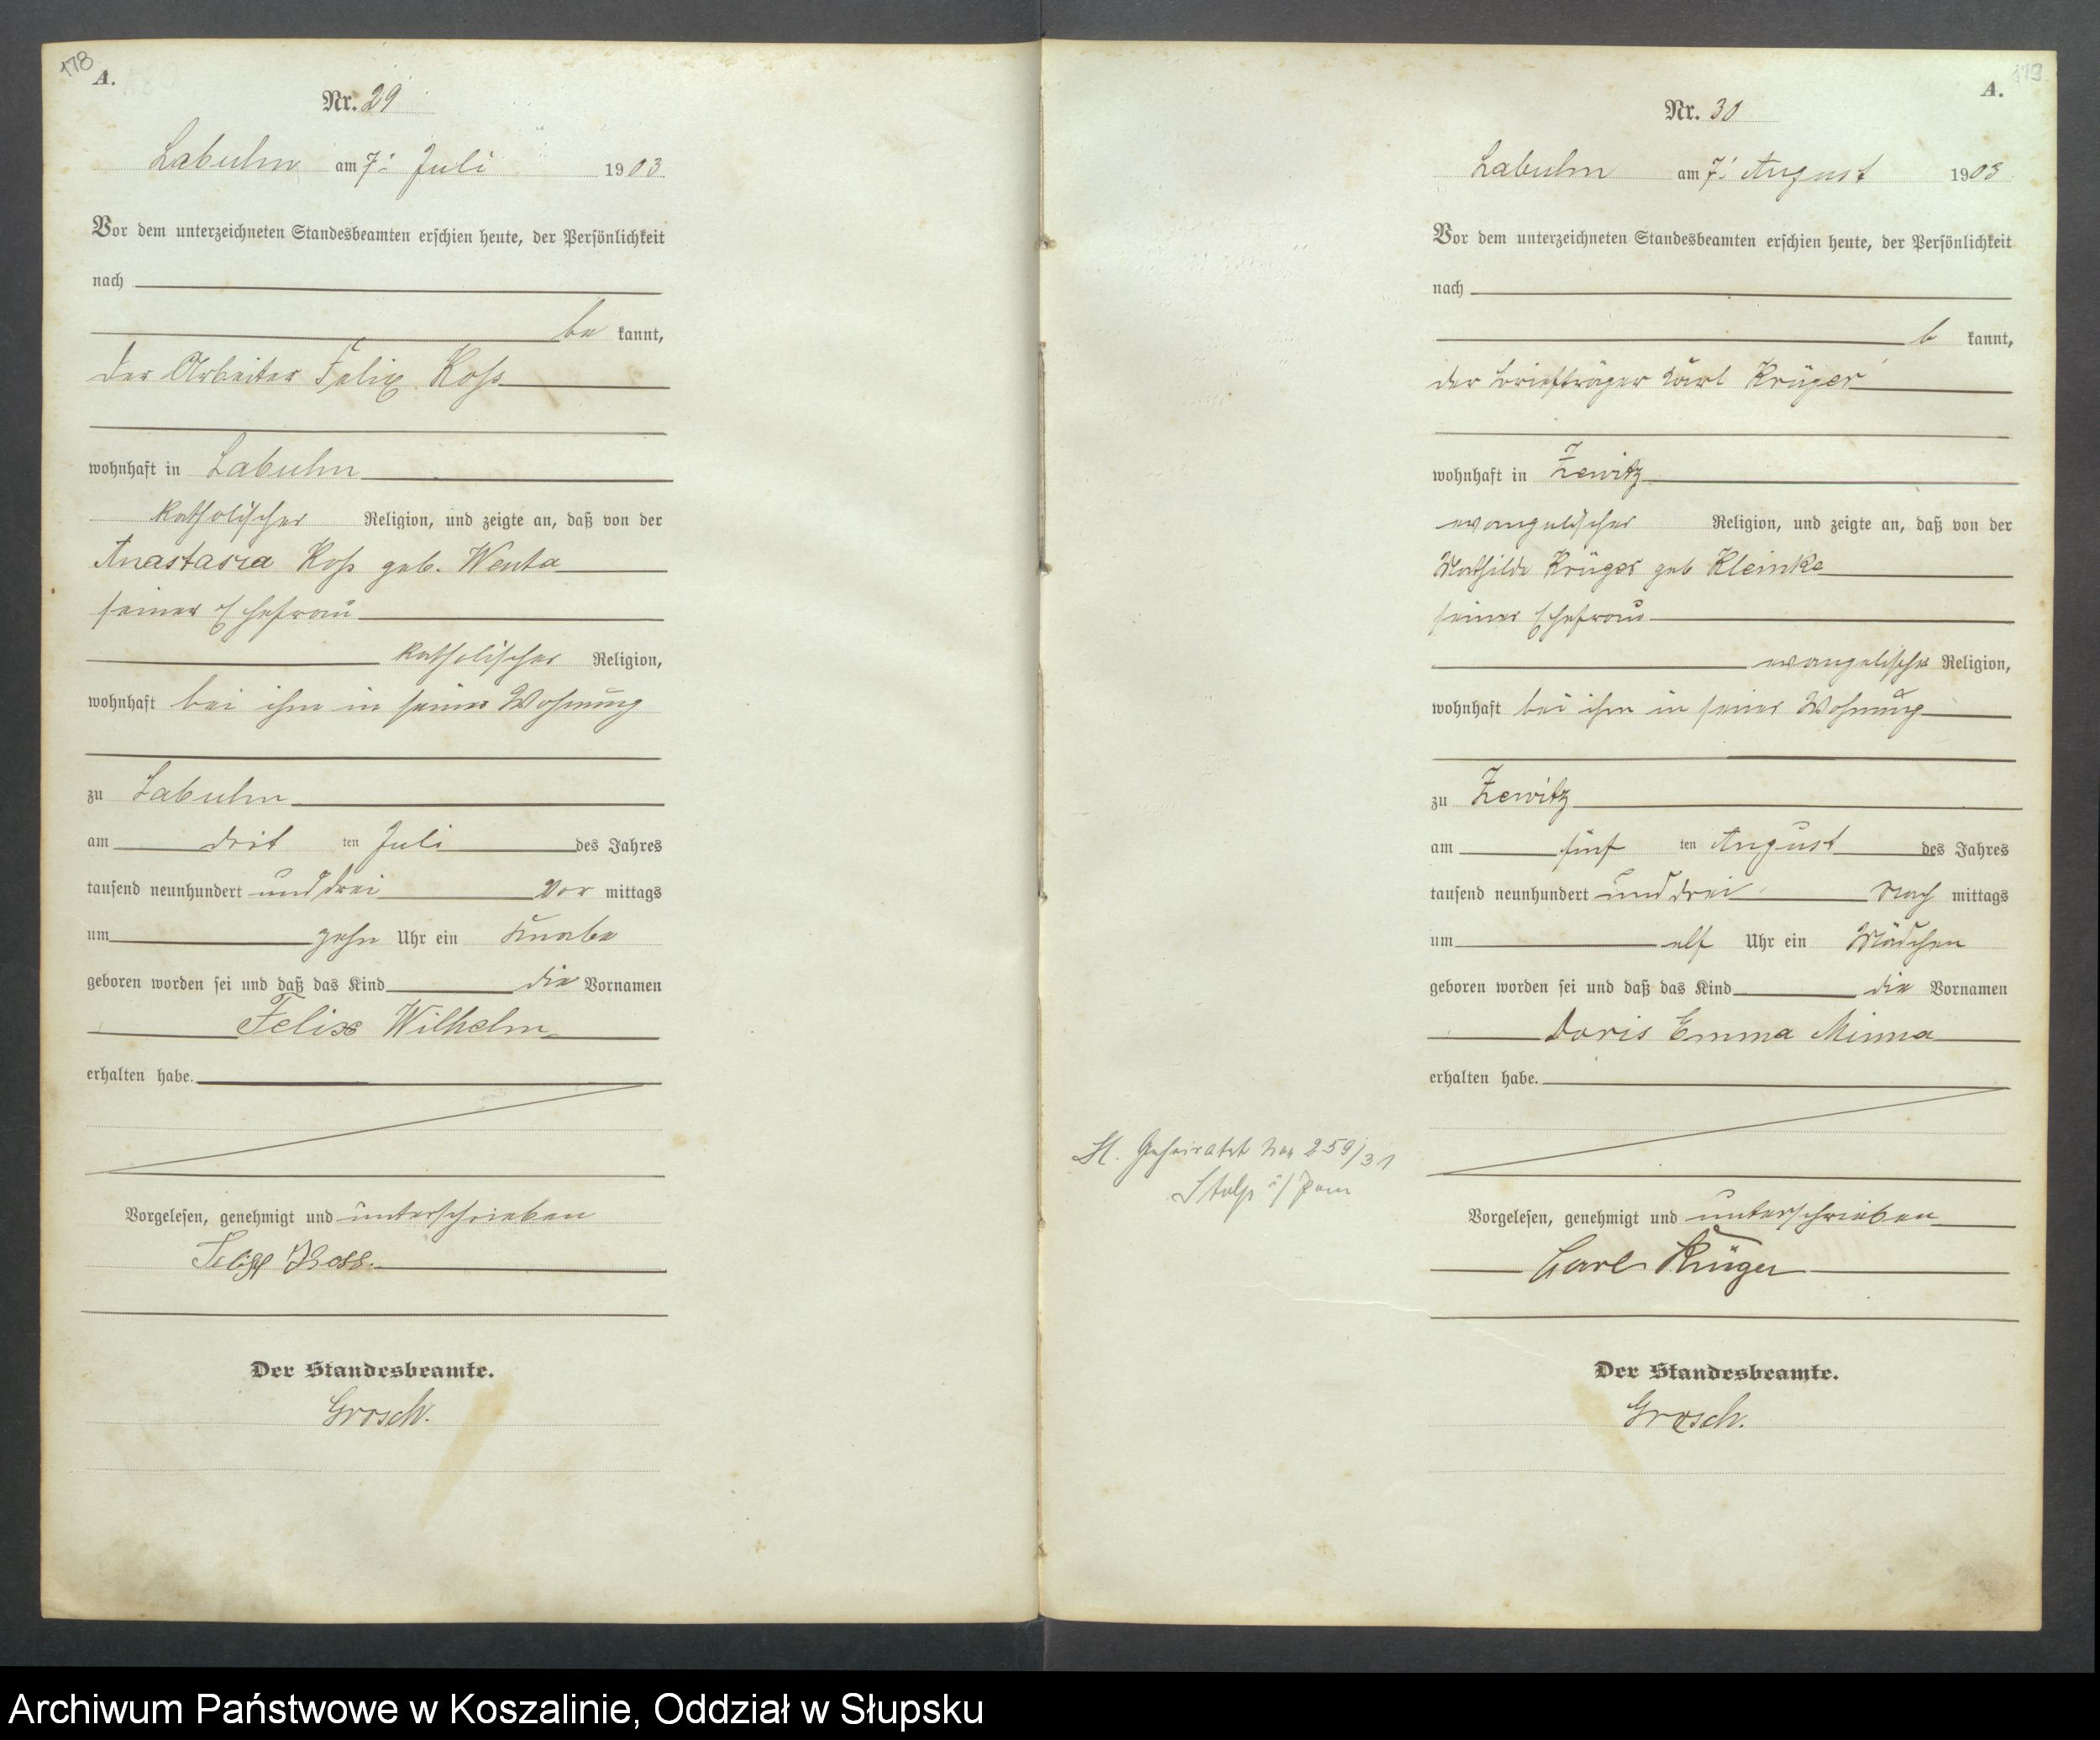 178
A.
Nr. 29
Labuhn am 7. Juli 1903
Vor dem unterzeichneten Standesbeamten erschien heute, der Persönlichkeit
nach
be kannt,
der Arbeiter Felix Koss
wohnhaft in Labuhn
katholischer Religion, und zeigte an, daß von der
Anastasia Koss geb. Wenta
seiner Ehefrau
katholischer Religion,
wohnhaft bei ihm in seiner Wohnung
zu Labuhn
am drit ten Juli des Jahres
tausend neunhundert und drei Vor mittags
um zehn Uhr ein Knabe
geboren worden sei und daß das Kind die Vornamen
Felix Wilhelm
erhalten habe.
Vorgelesen, genehmigt und unterschrieben
Felix Koss.
Der Standesbeamte.
Grosch.
179
A.
Nr. 30
Labuhn am 7. August 1903
Vor dem unterzeichneten Standesbeamten erschien heute, der Persönlichkeit
nach
b kannt,
der Briefträger Carl Krüger
wohnhaft in Zewitz
evangelischer Religion, und zeigte an, daß von der
Mathilde Krüger geb Kleinke
seiner Ehefrau
evangelischer Religion,
wohnhaft bei ihm in seiner Wohnung
zu Zewitz
am fünf ten August des Jahres
tausend neunhundert und drei Nach mittags
um elf Uhr ein Mädchen
geboren worden sei und daß das Kind die Vornamen
Doris Emma Minna
erhalten habe.
Geheiratet 259/31
Stolp i/Pom
Vorgelesen, genehmigt und unterschrieben
Carl Krüger
Der Standesbeamte.
Grosch.
Archiwum Państwowe w Koszalinie, Oddział w Słupsku